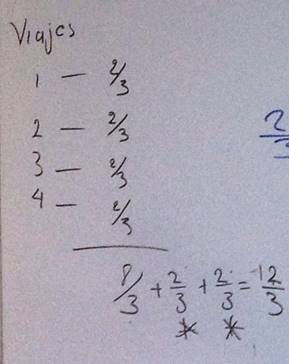 Viajes
1 — 2/3
2 — 2/3
3 — 2/3
4 — 2/3
8/3 + 2/3 + 2/3 = 12/3
* *
2/3